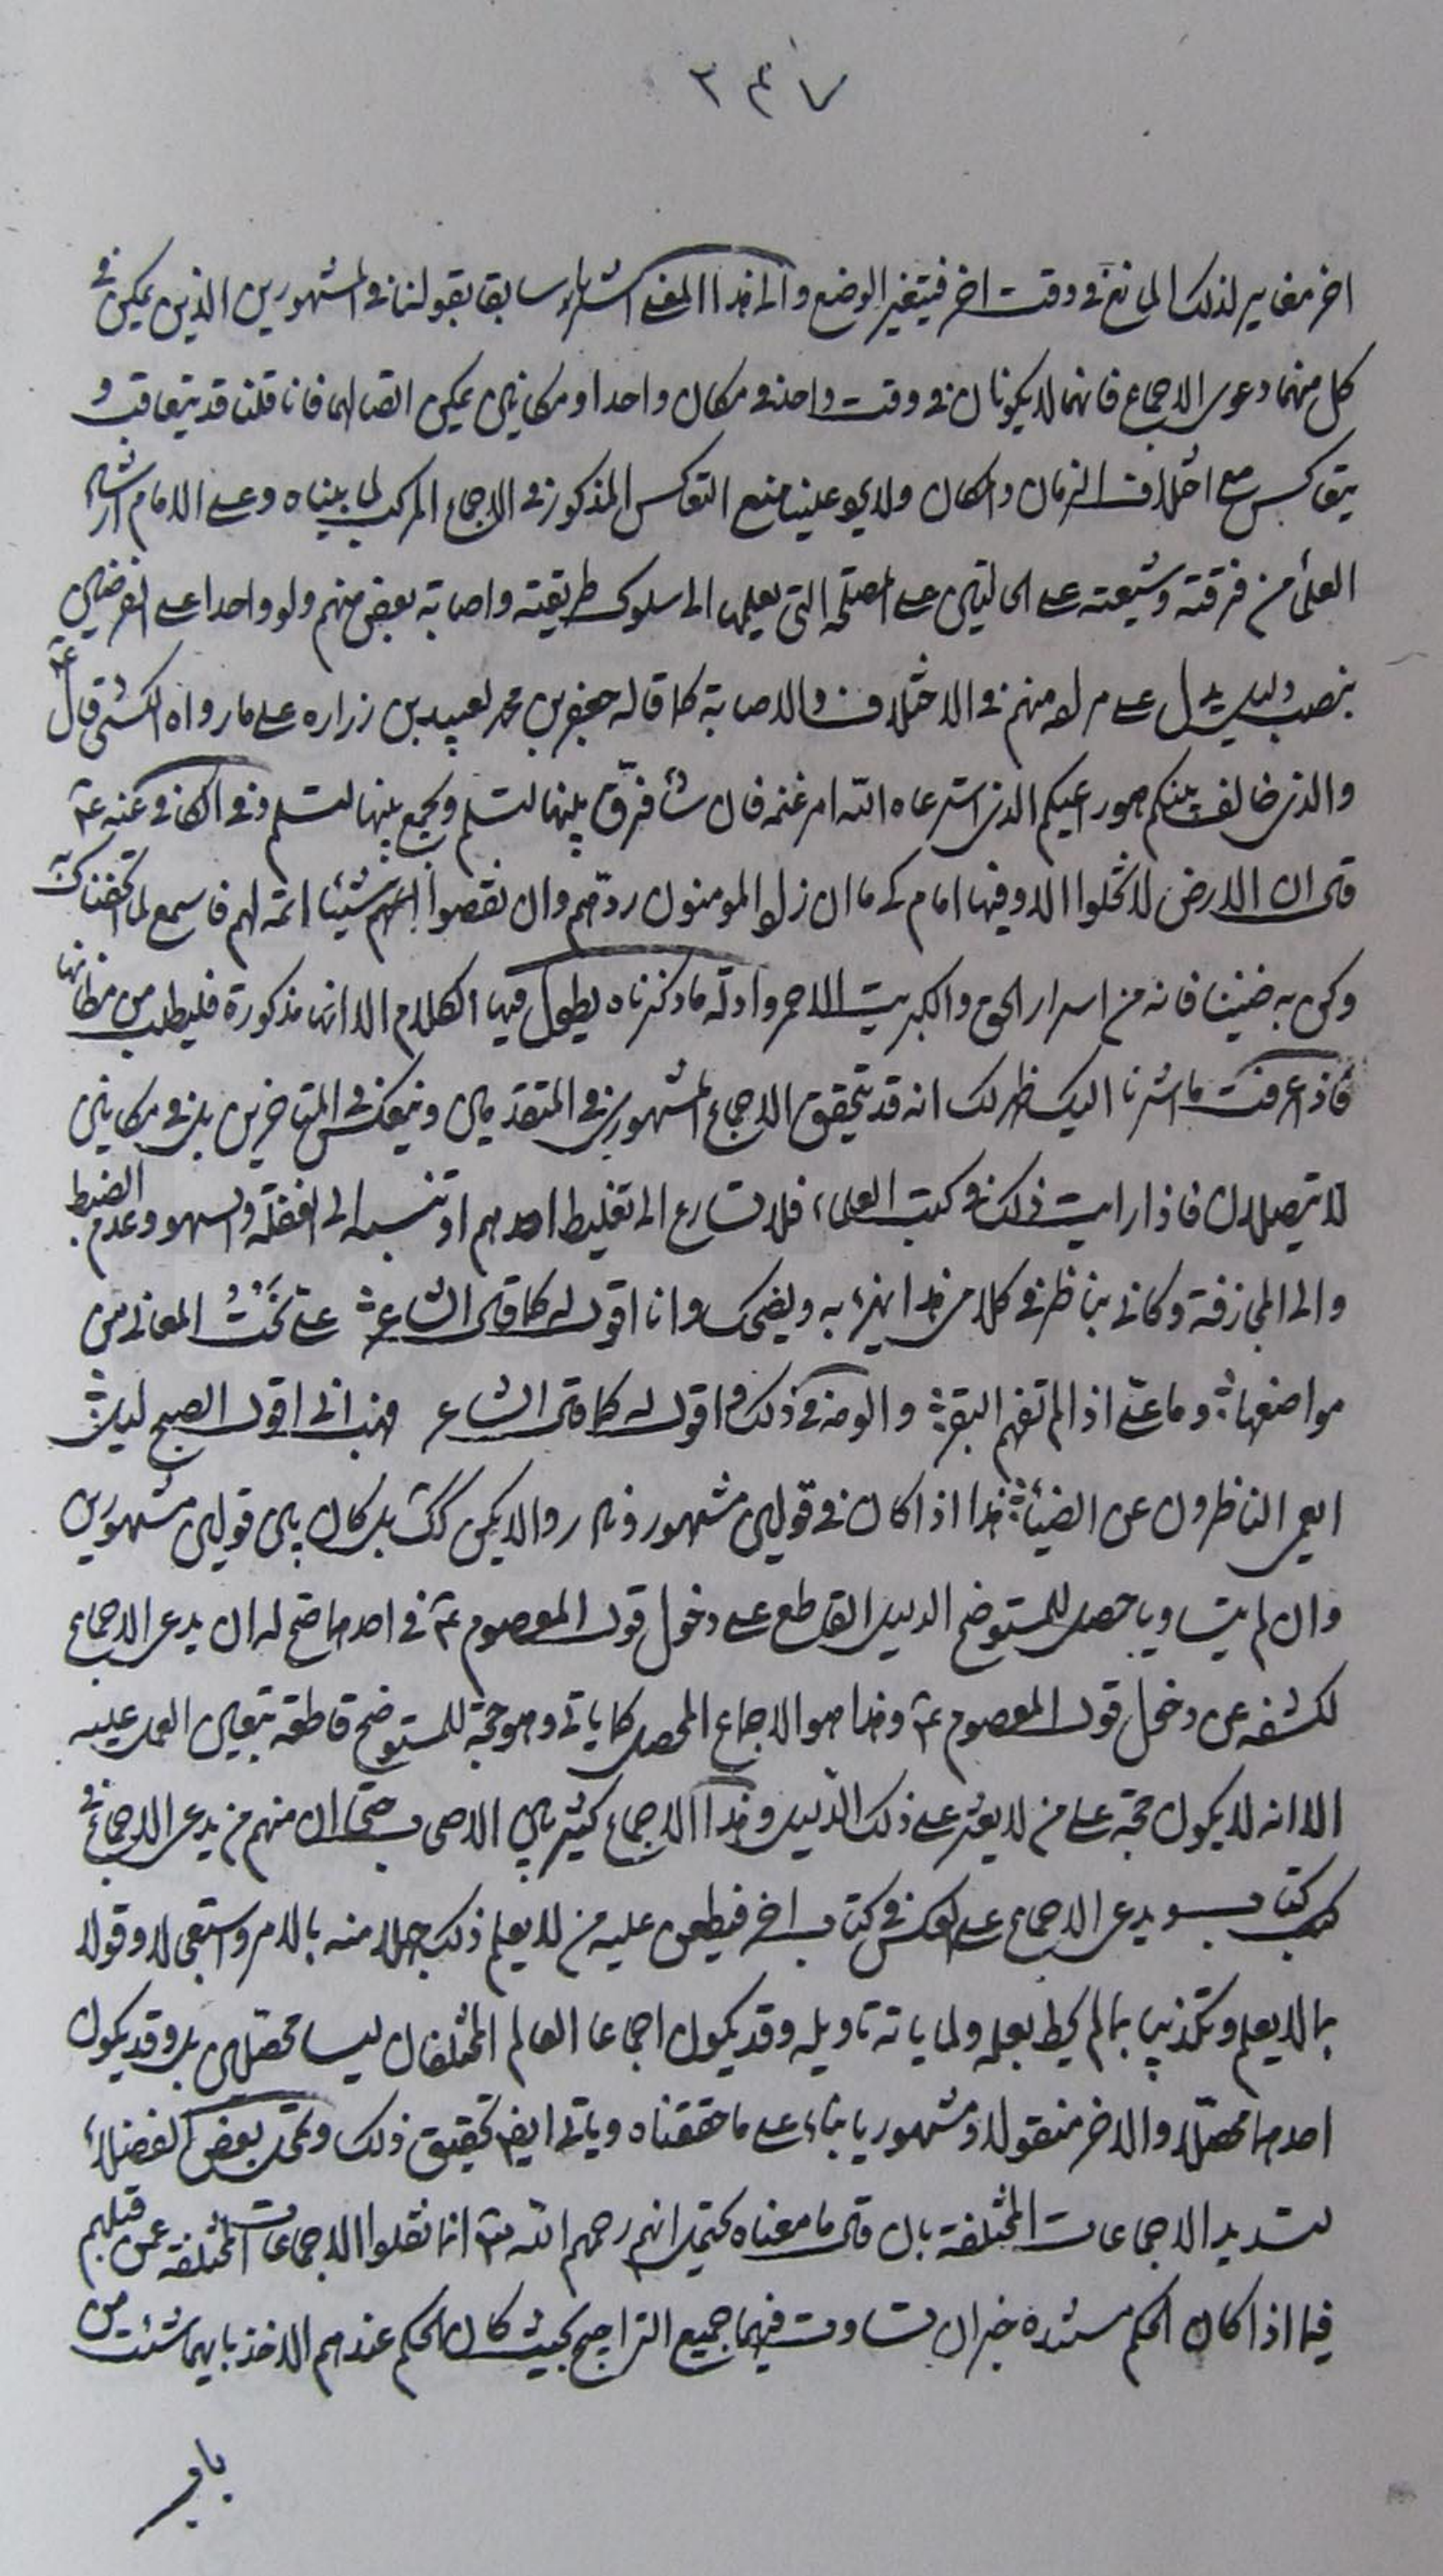 ٢٤٧
اخر مغاير لذلك المانع في وقت اخر فيتغير الوضع والى هذا المعنى اشرنا سابقا بقولنا في المشهورين الذين يمكن في
كل منهما دعوى الاجماع فانهما لا يكونان في وقت واحد في مكان واحد او مكانين يمكن اتصالهما فانا قلنا قد يتعاقب و
يتعاكس مع اختلاف الزمان والمكان ولا علينا منع التعاكس المذكور في الاجماع المركب لما بيناه وعلى الامام ارشاد
العلماء من فرقته وشيعته على الحالتين على المصلحة التي يعلمها الى سلوك طريقته واصابة بعض منهم ولو واحدا على الفرضين
بنصب دليل يدل على مراده منهم في الاختلاف والاصابة كما قاله جعفر بن محمد لعبيد بن زراره على ما رواه الكشي قال ع
والذي خالف بينكم هو راعيكم الذي استرعاه الله امر غنمه فان شاء فرّق بينها لتسلم ويجمع بينها لتسلم وفي الكافي عنه ع
قال ان الارض لا تخلوا الا وفيها امام كما ان زاد المؤمنون ردّهم وان نقصوا شيئا اتمه لهم فاسمع لما اتحفناك به
وكن به ضنينا فانه من اسرار الحق والكبريت الاحمر وادلة ما ذكرناه يطول فيها الكلام الا انها مذكورة فليطلب من مظانها
فاذا عرفت ما اشرنا اليك ظهر لك انه قد يتحقق الاجماع المشهوري في المتقدمين وينعكس في المتاخرين بل في مكانين
لا يتصلان فاذا رايت ذلك في كتب العلماء فلا تسارع الى تغليط احدهم او تنسبه الى الغفلة والسهو وعدم الضبط
والى المجازفة وكاني بناظر في كلامي هذا يهزء به ويضحك وانا اقول له كما قال الشاعر ؛ عليّ نحت المعاني من
مواضعها ؛ وما عليّ اذا لم تفهم البقر ؛ و في ذلك واقول له كما قال الشاعر فهبني اقول الصبح ليل ؛
ايعمى الناظرون عن الضياء ؛ هذا اذا كان في قولين مشهور ونادر والا يكن كك بل كان بين قولين مشهورين
وان لم يتساويا حصل للمستوضح الدليل القاطع على دخول قول المعصوم ع في احدهما صح له ان يدعي الاجماع
لكشفه عن دخول قول المعصوم ع وهذا هو الاجماع المحصل كما ياتي وهو حجة للمستوضح قاطعة يتعين العمل عليه
الا انه لا يكون حجة على من لا يعثر على ذلك الدليل وهذا الاجماع كثير بين الاصحاب حتى ان منهم من يدعي الاجماع في
كتاب ويدعي الاجماع على العكس في كتاب اخر فيطعن عليه من لا يعلم ذلك جهلا منه بالامر واستعجالا وقولا
بما لا يعلم وتكذيبا بما لم يحط بعلمه ولما ياته تاويله وقد يكون اجماعا العالم المختلفان ليسا محصّلين بل وقد يكون
احدهما محصّلا والاخر منقولا او مشهوريا بناء على ما حققناه وياتي ايضا تحقيق ذلك وتمحل بعض الفضلاء
لتسديد الاجماعات المختلفة بان قال ما معناه يحتمل انهم رحمهم الله انما نقلوا الاجماعات المختلفة عمن قبلهم
فيما اذا كان الحكم مستنده خبران تساوت فيهما جميع التراجيح بحيث كان الحكم عندهم الاخذ بايهما شئت من
باب